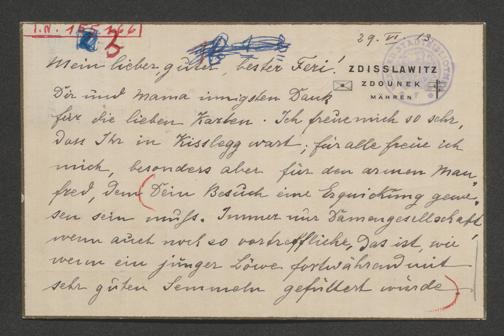 I.N. 155.266
3
29. VI 13.
Mein lieber, guter, bester Feri!
ZDISSLAWITZ
ZDOUNEK
MÄHREN
Dir und Mama innigsten Dank
für die lieben Karten. Ich freue mich so sehr,
dass Ihr in Kisslegg wart; für alle freue ich
mich, besonders aber für den armen Man-
fred, dem (Dein Besuch eine Erquickung gewe-
sen sein muß. Immer nur Damengesellschaft,
wenn auch noch so vortreffliche, das ist, wie
wenn ein junger Löwe fortwährend mit
sehr guten Semmeln gefüttert würde)